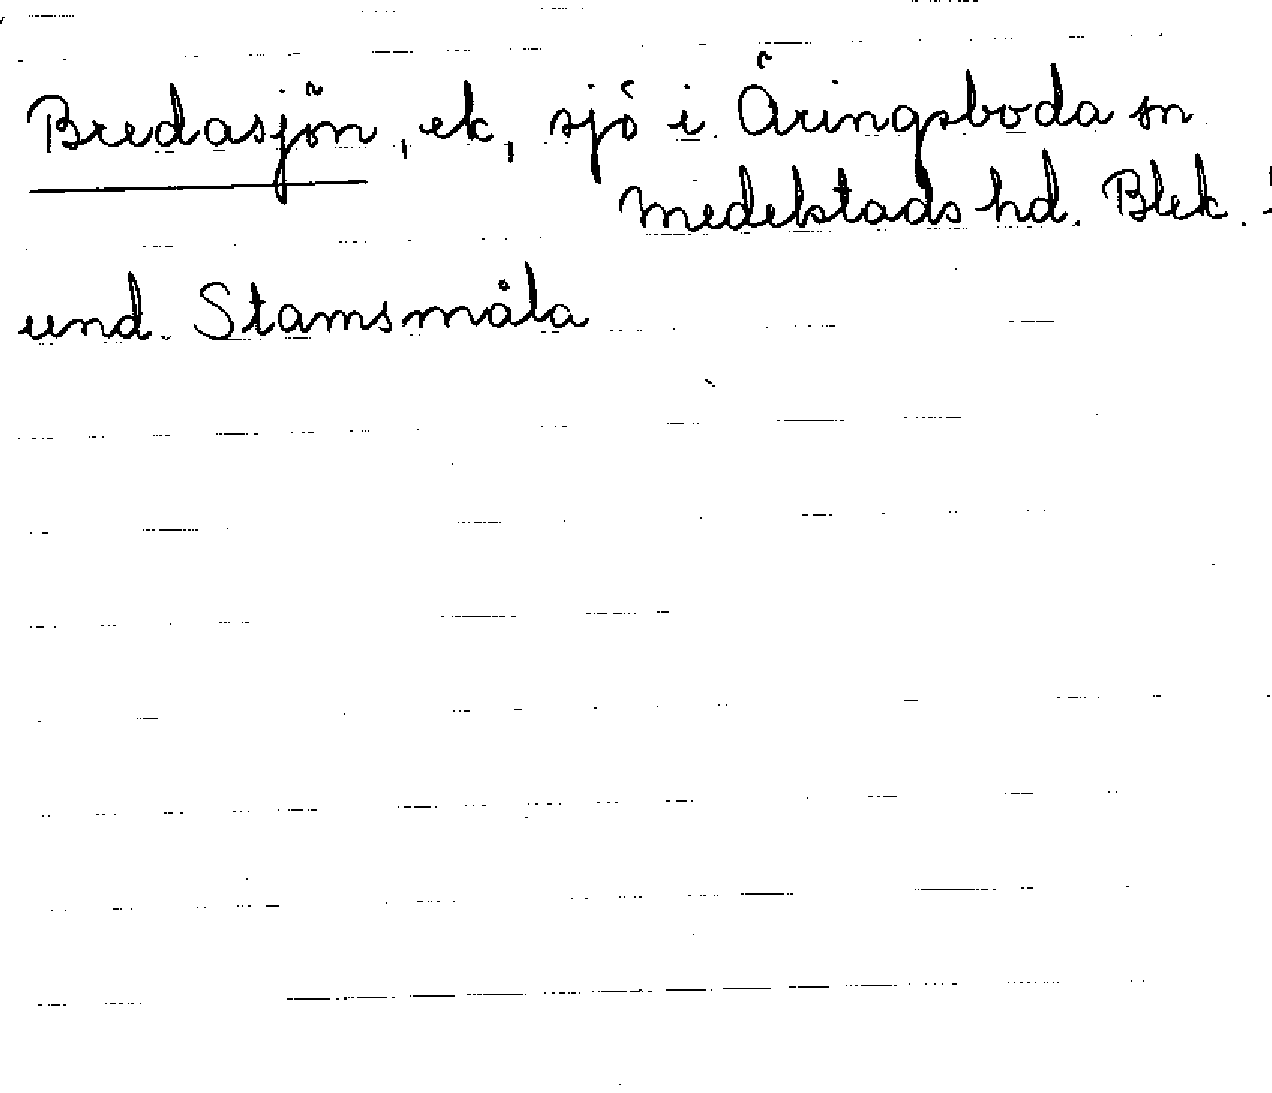 Bredasjön, ek, sjö i Äringsboda sn
Medelstads hd. Blek.
und. Stamsmåla